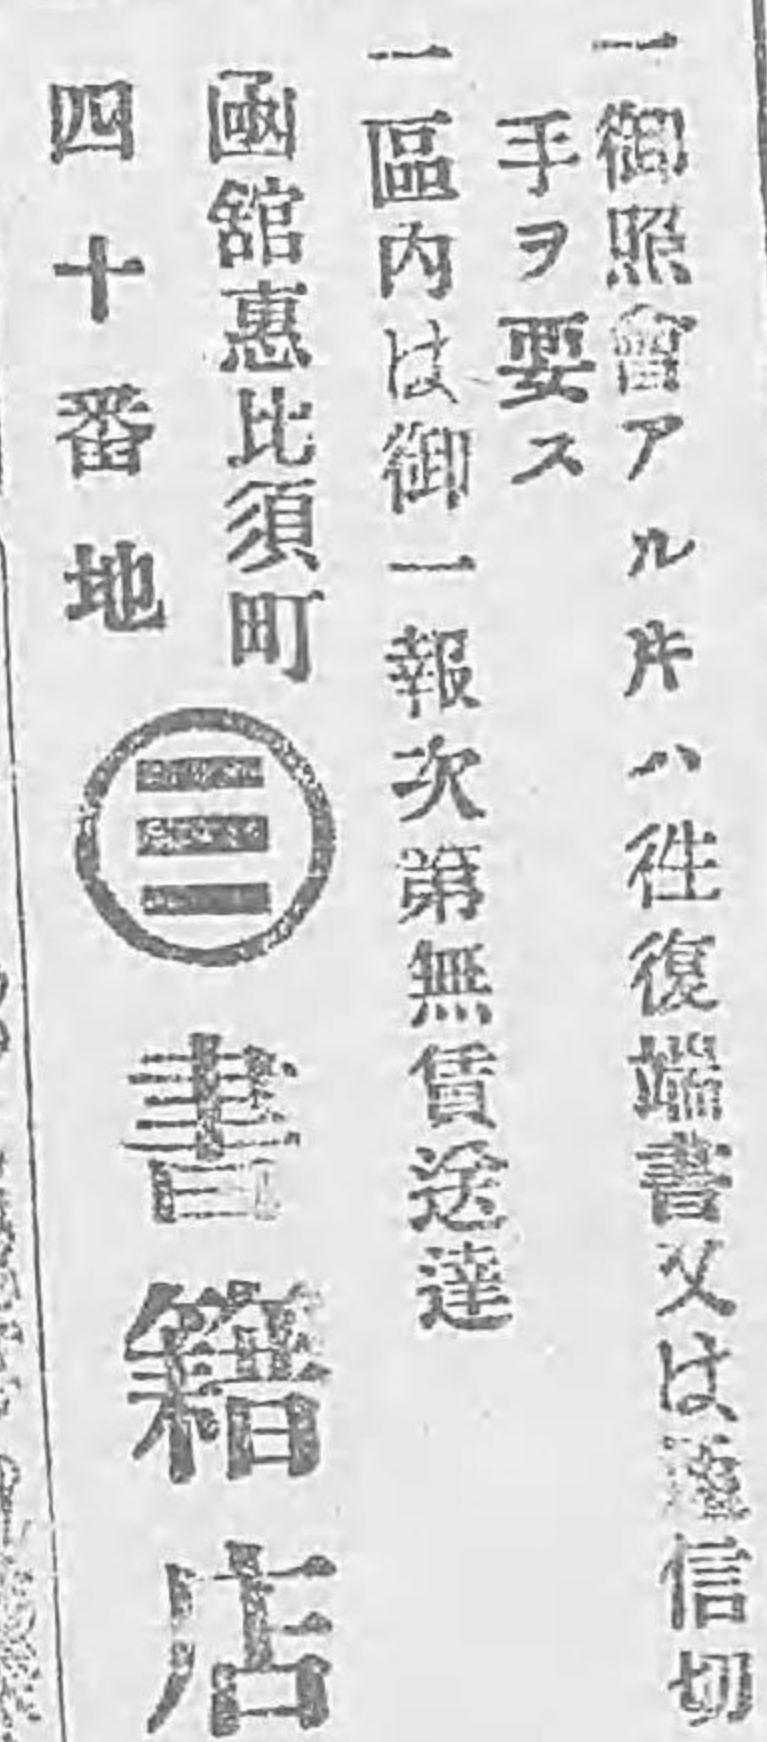 一御照會アル片ハ徃復端書又は信切
手ヲ要ス
一區内は御一報次第無賃送達
函舘惠比須町
四十番地
㊂書籍店